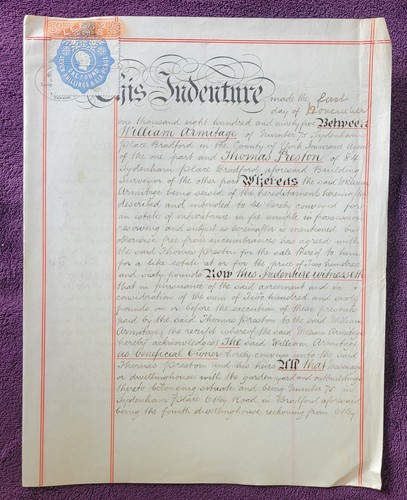 This Indenture made the
day of November
one thousand eight hundred and ninety five Between
William Armitage of Number 75 Sydenham
Place Bradford in the County of York Insurance Agent
of the one part and Thomas Preston of 84
Sydenham Place Bradford aforesaid Building
Surveyor of the other part Whereas the said William
Armitage being seised of the hereditaments hereinafter
described and intended to be hereby conveyed for
an estate of inheritance in fee simple in possession
reserving and subject as hereinafter is mentioned but
otherwise free from incumbrances has agreed with
the said Thomas Preston for the sale thereof to him
for a like estate at or for the price of Two hundred
and sixty pounds Now this Indenture witnesseth
that in pursuance of the said agreement and in
consideration of the sum of Two hundred and sixty
pounds on or before the execution of these presents
paid by the said Thomas Preston to the said William
Armitage (the receipt whereof the said William Armitage
hereby acknowledges) The said William Armitage
as beneficial Owner hereby conveys unto the said
Thomas Preston and his heirs All that messuage
or dwellinghouse with the garden yard and outbuildings
thereto belonging situate and being Number 75 in
Sydenham Place Otley Road in Bradford aforesaid
being the fourth dwellinghouse reckoning from Otley